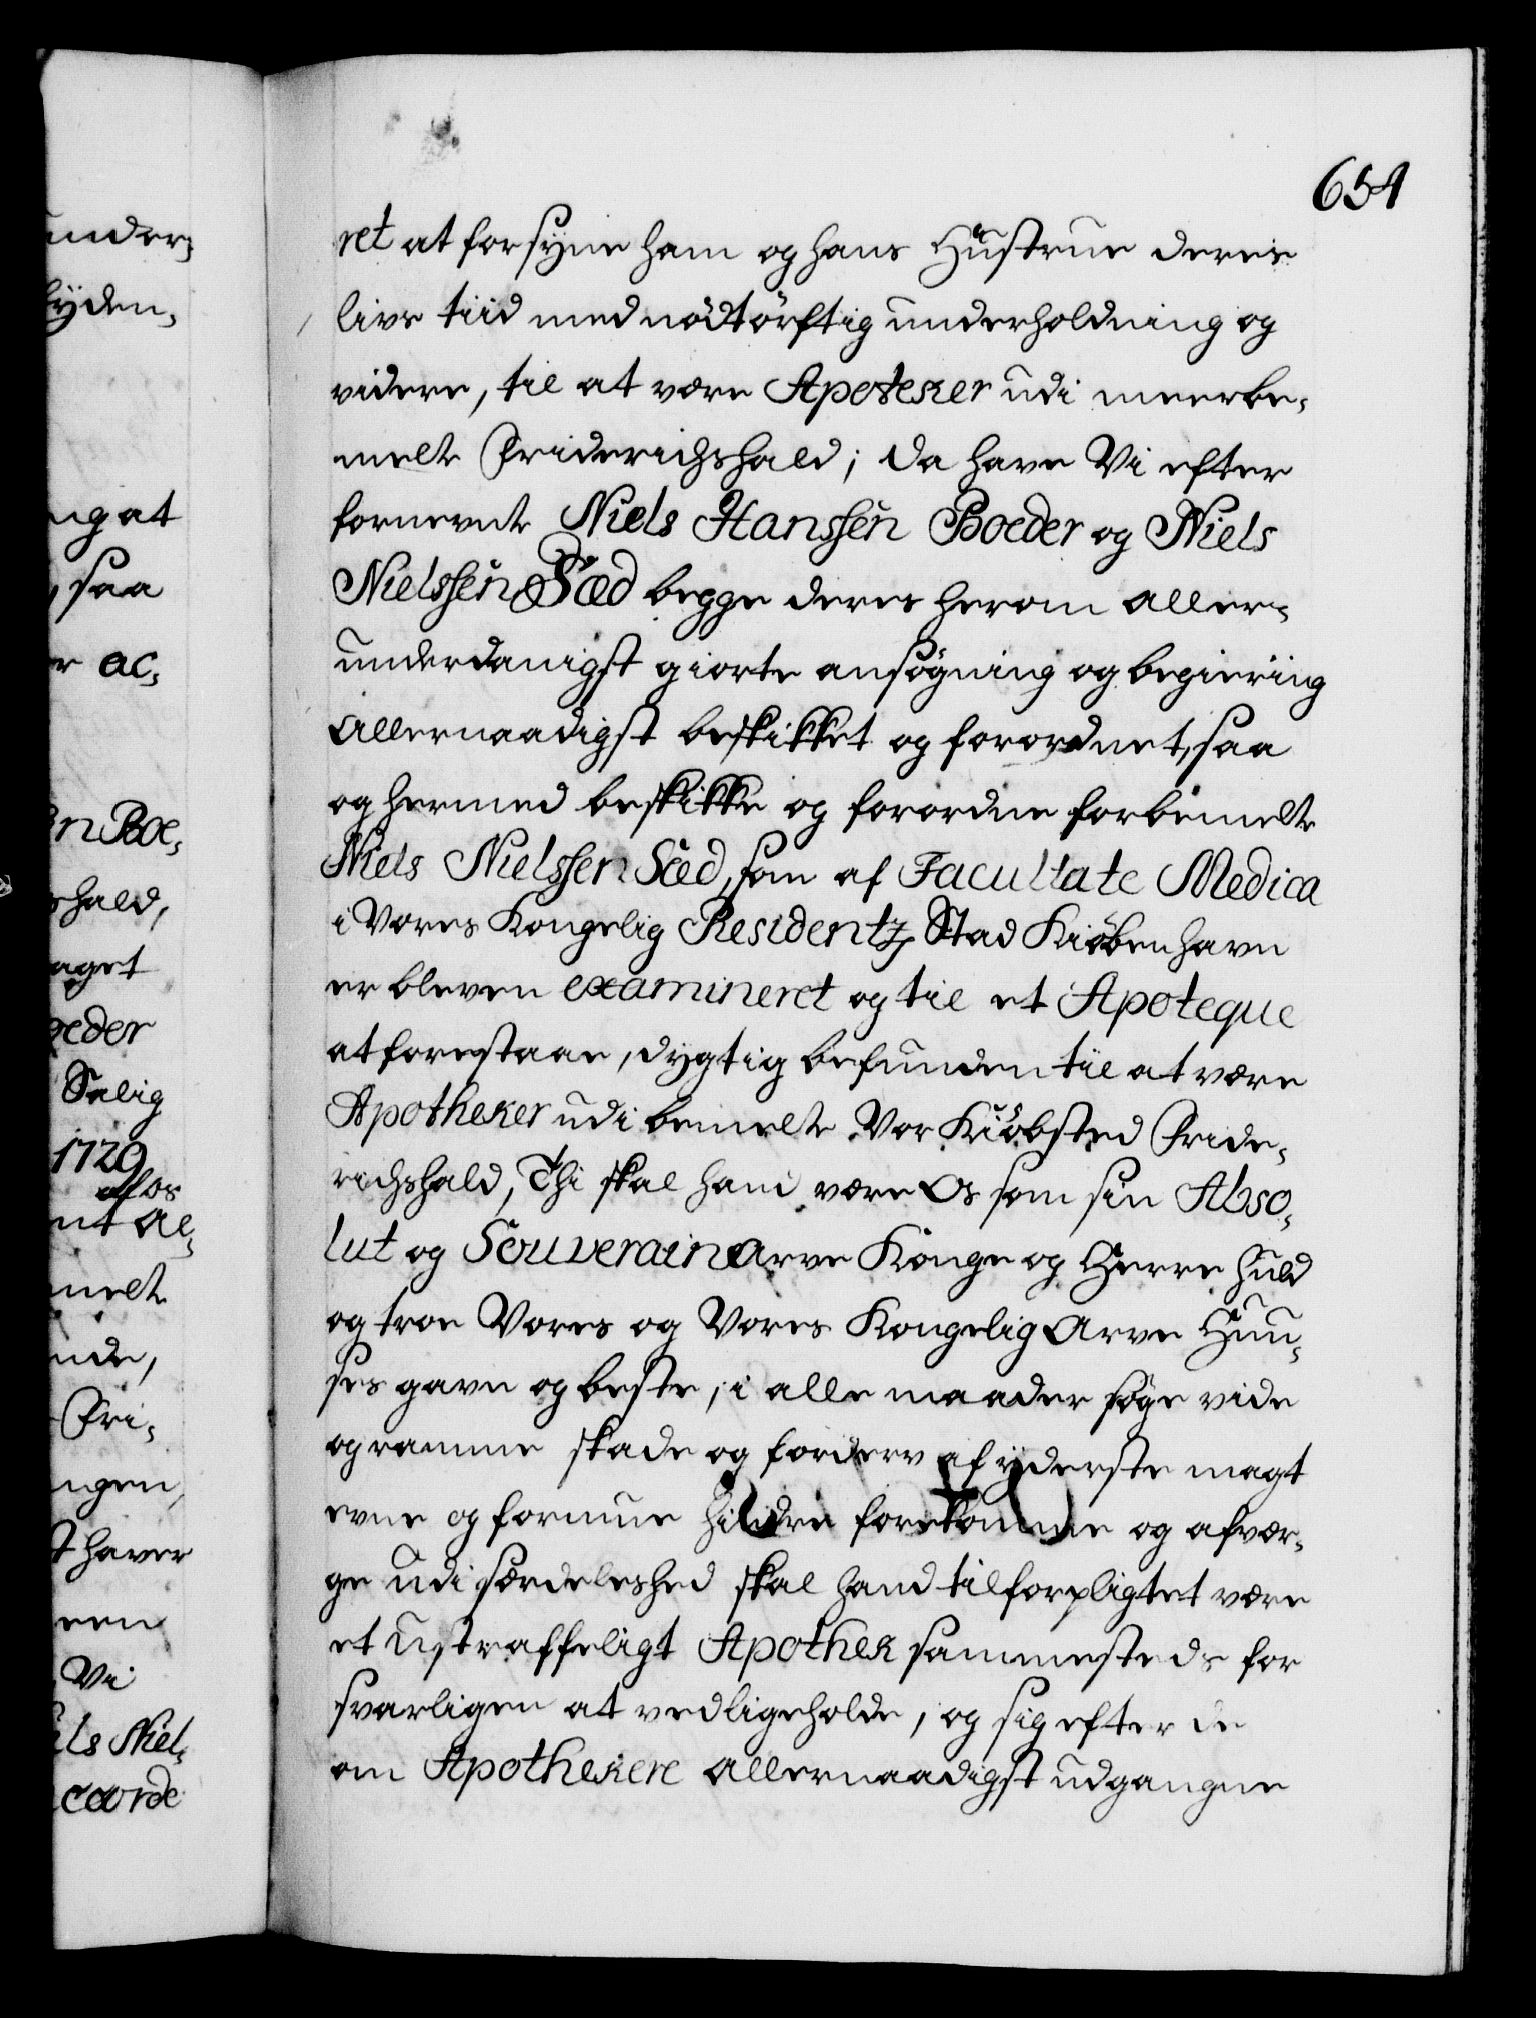 654
ret at forsyne ham og hans Hustrue deres
livs tiid med nødtørftig underholdning og
videre, til at være Apoteker udi meerbe,
melte Friderichshald; da have Vi efter
fornevnte Niels Hanssen Boeder og Niels
Nielssen Sæd begge deres herom aller,
underdanigst giorte ansøgning og begiering
allernaadigst beskikket og forordnet, saa
og hermed beskikke og forordne forbemelte
Niels Nielssen Sæd, som af Facultate Medica
i Vores Kongelig Residentz Stad Kiøbenhavn
er bleven examineret og til et Apoteque
at forestaae, dygtig befunden til at være
Apotheker udi bemelte Vor Kiøbsted Fride,
richshald, Thi skal hand være Os som sin Abso,
lut og Souverain Arve Konge og Herre huld
og troe Vores og Vores Kongelig Arve Huu,
ses gavn og beste, i alle maader søge vide
og ramme skade og forderv af yderste magt
evne og formue hindre forekomme og afvær,
ge udi særdeleshed skal hand tilforpligtet være
et ustraffeligt Apothek sammesteds for
svarligen at vedligeholde, og sig efter de
om Apothekere allernaadigst udgangne
under,
lyden,
ng at
, saa
er ac,
en Boe,
shald,
aget
oeder
Salig
1729
af os
nt al,
melte
nde,
Fri,
ngen,
t haver
een
Vi
els Niel,
ccorde